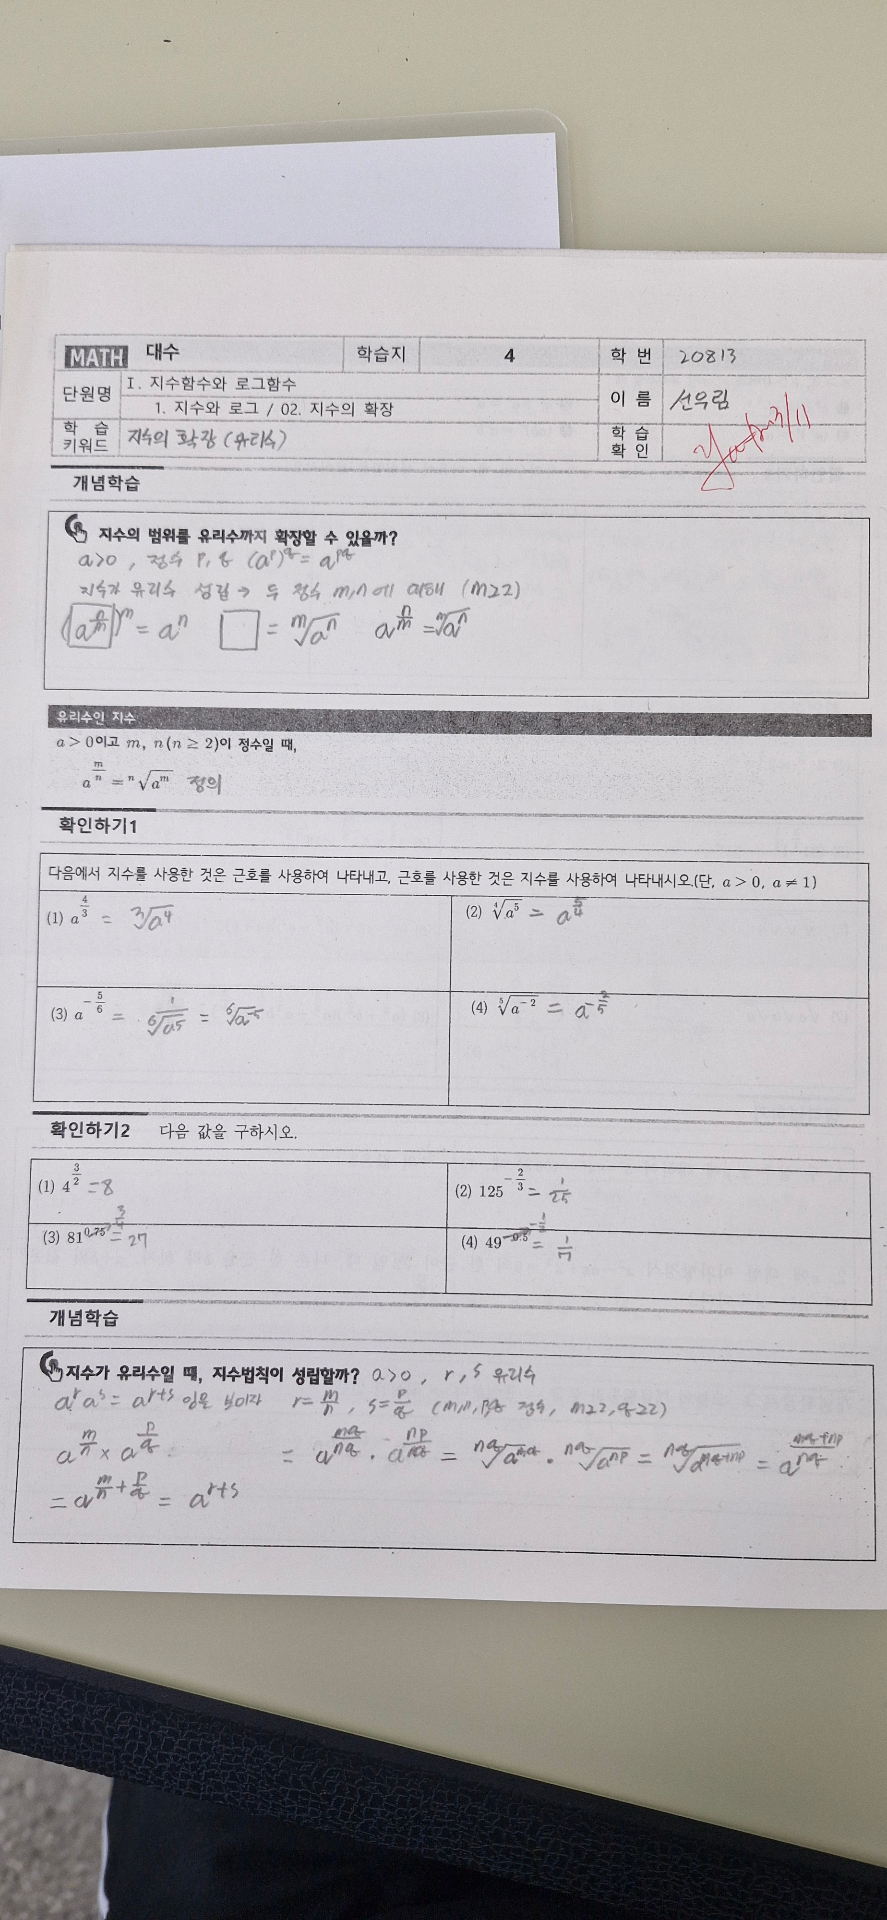 MATH 대수 학습지 4 학 번 20813
단원명 Ⅰ. 지수함수와 로그함수 이 름 선우림
1. 지수와 로그 / 02. 지수의 확장
학 습 키워드 지수의 확장 (유리수) 학 습 확 인 3/11
개념학습
지수의 범위를 유리수까지 확장할 수 있을까?
a>0, 정수 p, q (a^p)^q = a^{pq}
지수가 유리수 성립 → 두 정수 m,n에 대해 (m≥2)
(a^{n/m})^m = a^n □ = ᵐ√(a^n) a^{n/m} = ᵐ√(a^n)
유리수인 지수
a > 0이고 m, n(n ≥ 2)이 정수일 때,
a^{m/n} = ⁿ√(a^m) 정의
확인하기1
다음에서 지수를 사용한 것은 근호를 사용하여 나타내고, 근호를 사용한 것은 지수를 사용하여 나타내시오.(단, a > 0, a ≠ 1)
(1) a^{4/3} = ³√(a^4)
(2) ⁴√(a^5) = a^{5/4}
(3) a^{-5/6} = 1/⁶√(a^5) = ⁶√(a^{-5})
(4) ⁵√(a^{-2}) = a^{-2/5}
확인하기2 다음 값을 구하시오.
(1) 4^{3/2} = 8
(2) 125^{-2/3} = 1/25
(3) 81^{0.75} 3/4 = 27
(4) 49^{-0.5} -1/2 = 1/7
개념학습
지수가 유리수일 때, 지수법칙이 성립할까? a>0, r, s 유리수
a^r a^s = a^{r+s} 임을 보이자 r = m/n, s = p/q (m,n,p,q 정수, m≥2, q≥2)
a^{m/n} × a^{p/q} = a^{mq/nq} · a^{np/nq} = ^{nq}√(a^{mq}) · ^{nq}√(a^{np}) = ^{nq}√(a^{mq+np}) = a^{(mq+np)/nq}
= a^{m/n + p/q} = a^{r+s}